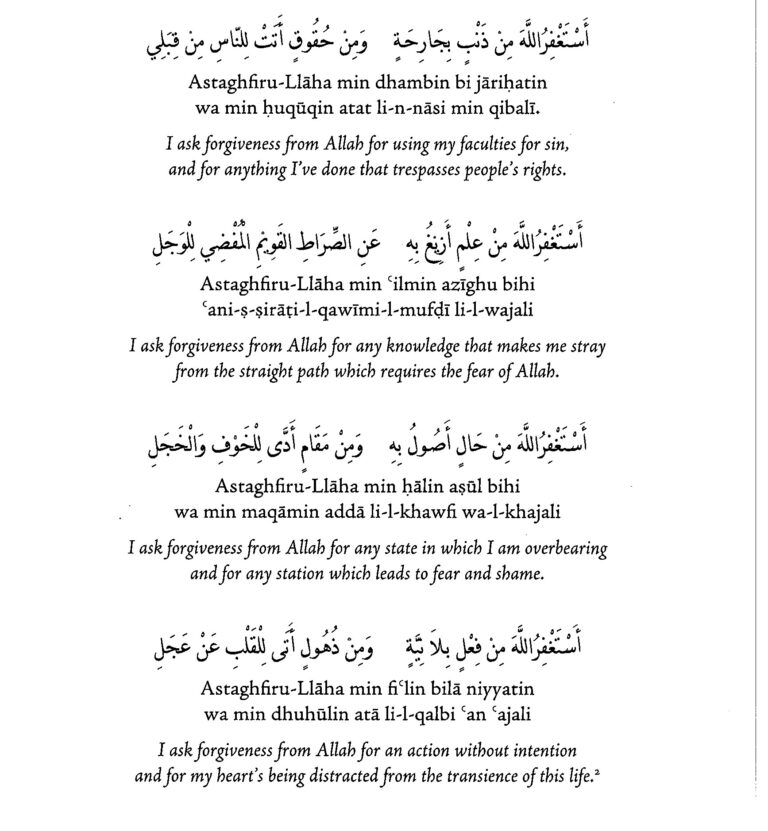 أَسْتَغْفِرُاللَّهَ مِنْ ذَنْبٍ بِجَارِحَةٍ وَمِنْ حُقُوقٍ أَتَتْ لِلنَّاسِ مِنْ قِبَلِي
Astaghfiru-Llāha min dhambin bi jāriḥatin
wa min ḥuqūqin atat li-n-nāsi min qibalī.
I ask forgiveness from Allah for using my faculties for sin,
and for anything I've done that trespasses people's rights.
أَسْتَغْفِرُاللَّهَ مِنْ عِلْمٍ أَزِيغُ بِهِ عَنِ الصِّرَاطِ القَوِيْمِ الْمُفْضِي لِلْوَجَلِ
Astaghfiru-Llāha min ʿilmin azīghu bihi
ʿani-ṣ-ṣirāṭi-l-qawīmi-l-mufḍī li-l-wajali
I ask forgiveness from Allah for any knowledge that makes me stray
from the straight path which requires the fear of Allah.
أَسْتَغْفِرُاللَّهَ مِنْ حَالٍ أَصُولُ بِهِ وَمِنْ مَقَامٍ أَدَّى لِلْخَوْفِ وَالْخَجَلِ
Astaghfiru-Llāha min ḥālin aṣūl bihi
wa min maqāmin addā li-l-khawfi wa-l-khajali
I ask forgiveness from Allah for any state in which I am overbearing
and for any station which leads to fear and shame.
أَسْتَغْفِرُاللَّهَ مِنْ فِعْلٍ بِلاَ نِيَّةٍ وَمِنْ ذُهُولٍ أَتَى لِلْقَلْبِ عَنْ عَجَلِ
Astaghfiru-Llāha min fiʿlin bilā niyyatin
wa min dhuhūlin atā li-l-qalbi ʿan ʿajali
I ask forgiveness from Allah for an action without intention
and for my heart's being distracted from the transience of this life.²